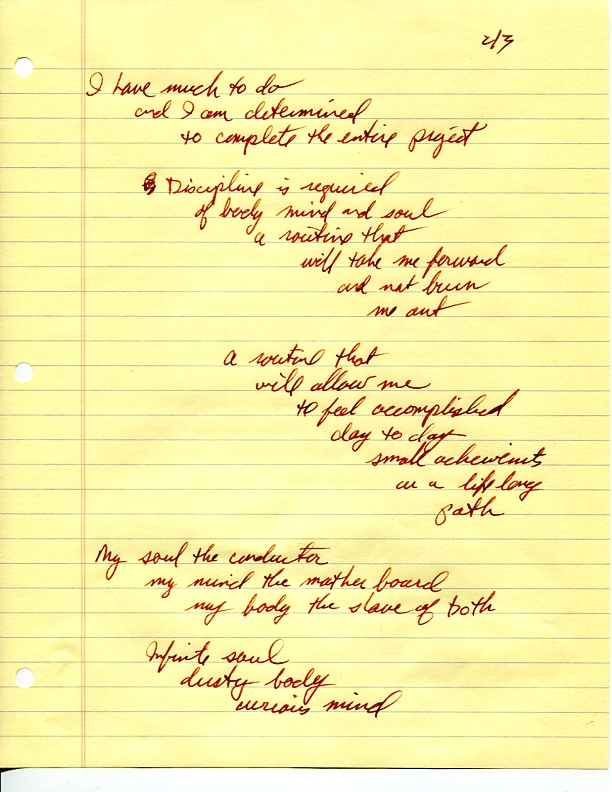 2/3
I have much to do
and I am determined
to complete the entire project
Discipline is required
of body mind and soul
a routine that
will take me forward
and not burn
me out
a routine that
will allow me
to feel accomplished
day to day
small acheivments
on a life long
path
My soul the conductor
my mind the mother board
my body the slave of both
Infinite soul
dusty body
curious mind